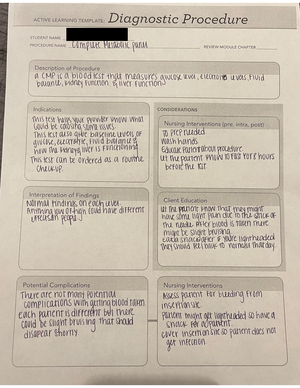 ACTIVE LEARNING TEMPLATE: Diagnostic Procedure
STUDENT NAME
PROCEDURE NAME Complete Metabolic panel REVIEW MODULE CHAPTER
Description of Procedure
a CMP is a blood test that measures glucose level, electrolyte levels, fluid
balance, kidney function & liver function
Indications
This test helps your provider know what
could be causing some issues.
This test can also give baseline levels of
glucose, electrolyte, fluid balance &
how the kidney, liver is functioning
This test can be ordered as a routine
checkup.
CONSIDERATIONS
Nursing Interventions (pre, intra, post)
needed
Wash hands
Educate patient about procedure
Let the patient know to fast for 8 hours
before the test
Interpretation of Findings
Normal findings on each level.
Anything low or high could have different
Client Education
Let the patient know that they might
have some light pain due to the stick of
the needle. After blood is taken there
might be slight bruising.
they should be back to normal that day.
Potential Complications
There are not many potential
complications with getting blood taken
each patient is different but there
could be slight bruising that should
disapear shortly.
Nursing Interventions
Assess patient for bleeding from
insertion site.
Patient might get lightheaded so have a
snack for a patient.
cover insertion site so patient does not
get infection.